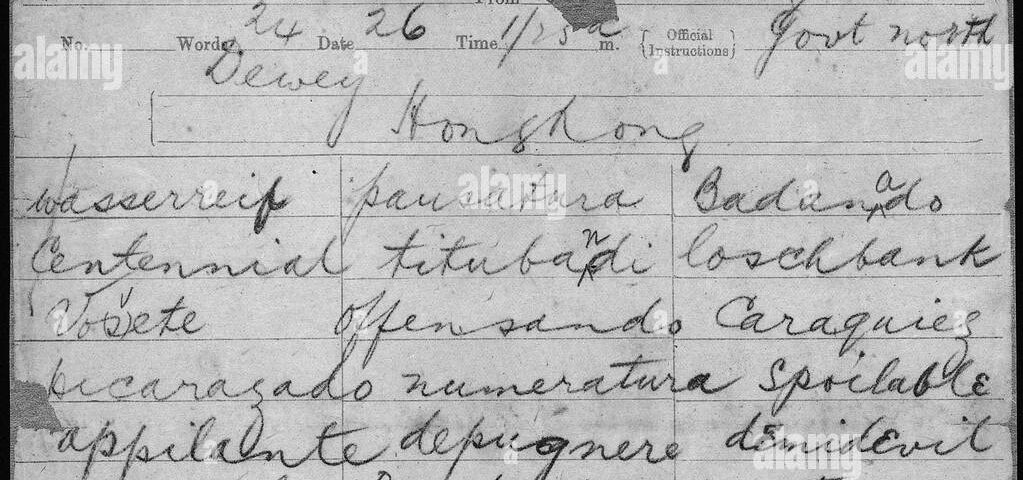 From
No. Words 24 Date 26 Time 1/25 a m. { Official Instructions } Govt north
Dewey
Hongkong
wasserreif pausatura Badanado
Centennial titubandi loschbank
Offensando Caraquiez
hicaragado numeratura Spoilable
appilante depugnere demidevil